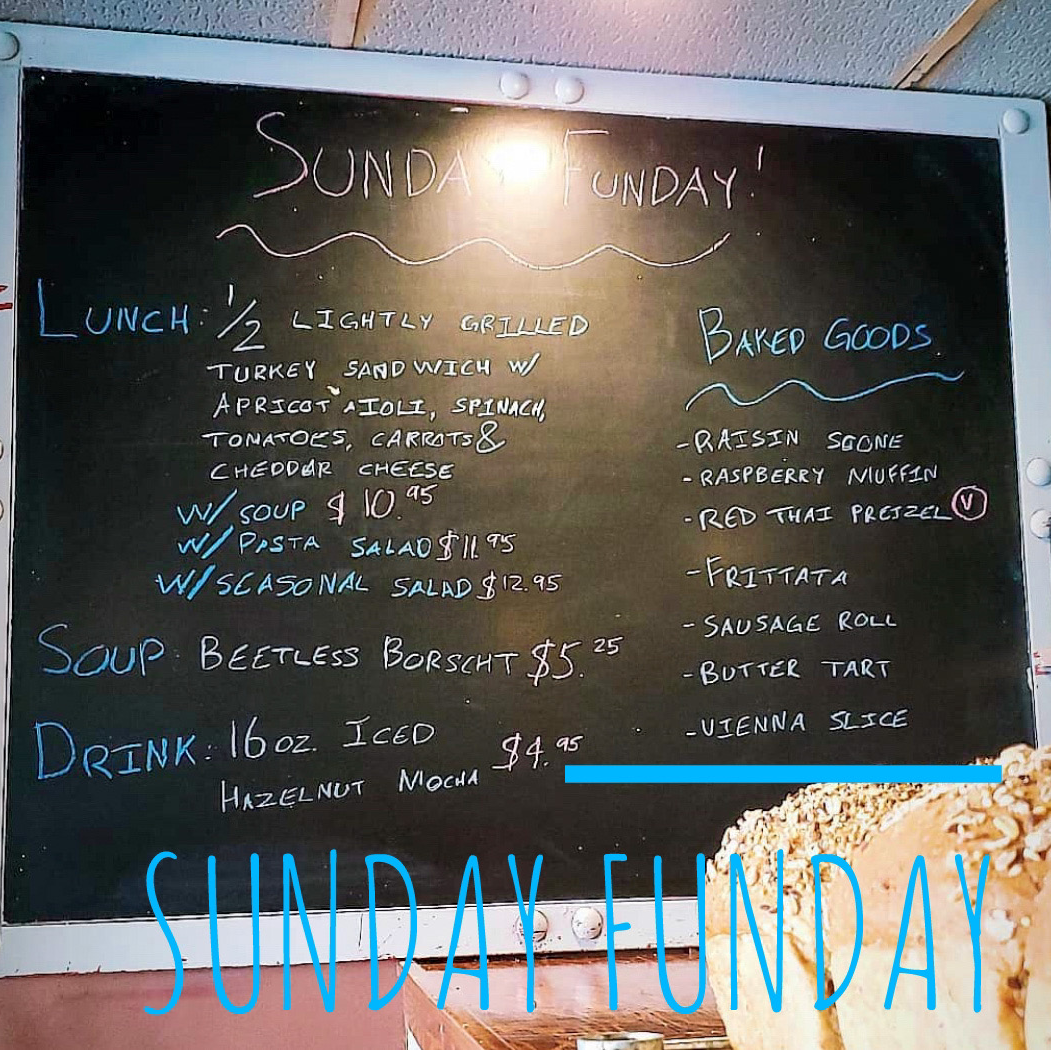 SUNDAY FUNDAY!
LUNCH: 1/2 LIGHTLY GRILLED
TURKEY SANDWICH W/
APRICOT AIOLI, SPINACH,
TOMATOES, CARROTS &
CHEDDAR CHEESE
W/ SOUP $10.95
W/ PASTA SALAD $11.95
W/ SEASONAL SALAD $12.95
SOUP: BEETLESS BORSCHT $5.25
DRINK: 16 oz. ICED
HAZELNUT MOCHA $4.95
BAKED GOODS
-RAISIN SCONE
-RASPBERRY MUFFIN
-RED THAI PRETZEL V
-FRITTATA
-SAUSAGE ROLL
-BUTTER TART
-VIENNA SLICE
SUNDAY FUNDAY